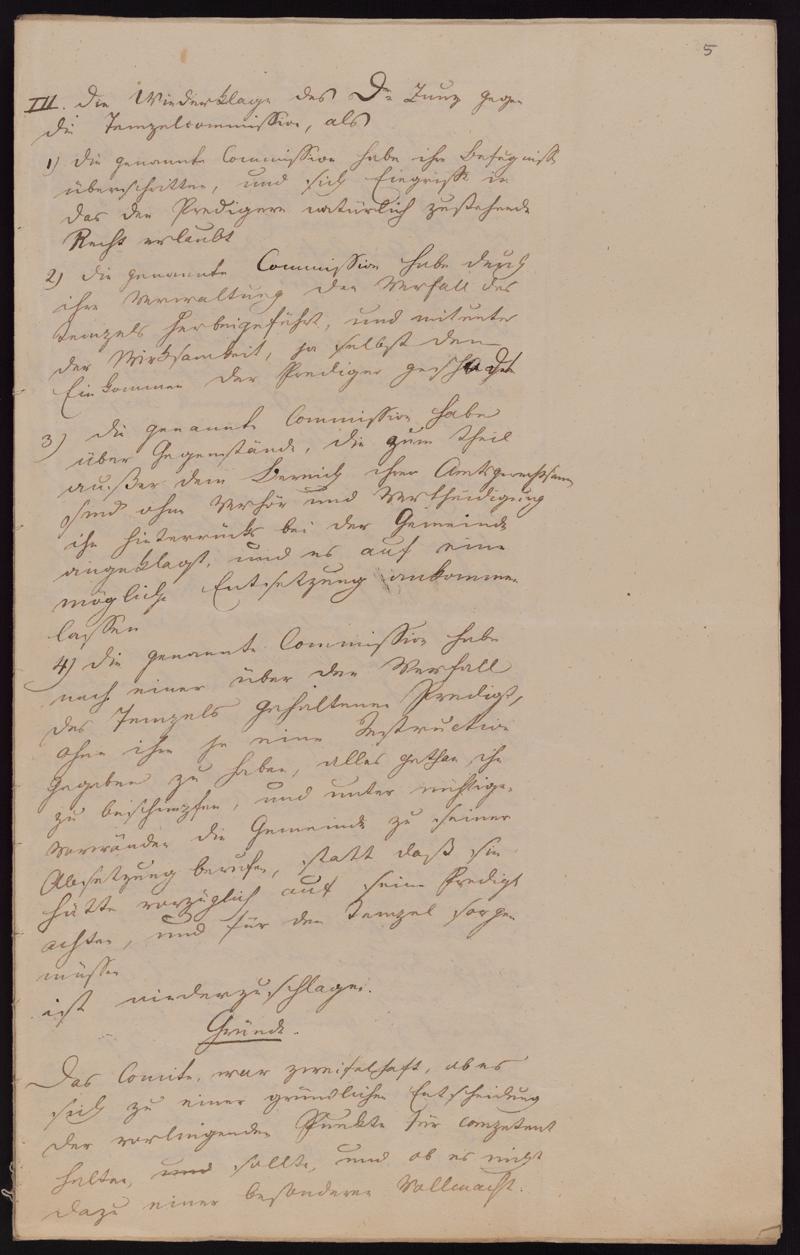 5
III. Die Wiederklage des Dr Zunz gegen
die Tempelcommission, als
1) die genannte Commission habe ihre Befugniß
überschritten, und sich Eingriffe in
das den Predigern natürlich zustehende
Recht erlaubt
2) die genannte Commission habe durch
ihre Verwaltung den Verfall des
Tempels herbeigeführt, und mitunter
der Wirksamkeit, ja selbst dem
Einkommen der Prediger geschadet
3) die genannte Commission habe
über Gegenstände, die zum Theil
außer dem Bereich ihrer Amtsgerechtsame
sind ohne Verhör und Vertheidigung
ihn hinterrücks bei der Gemeinde
angeklagt, und es auf eine
mögliche Entsetzung ankommen
lassen
4) die genannte Commission habe
nach einer über den Verfall
des Tempels gehaltenen Predigt,
ohne ihm je eine Instruction
gegeben zu haben, alles gethan, ihn
zu beschimpfen, und unter nichtigen
Vorwänden die Gemeinde zu seiner
Absetzung berufen, statt daß sie
hätte vorzüglich auf seine Predigt
achten, und für den Tempel sorgen
müssen
ist niederzuschlagen.
Gründe.
Das Comite, war zweifelhaft, ob es
sich zu einer gründlichen Entscheidung
der vorliegenden Punkte für competent
halten, und sollte, und ob es nicht
dazu einer besonderen Vollmacht.